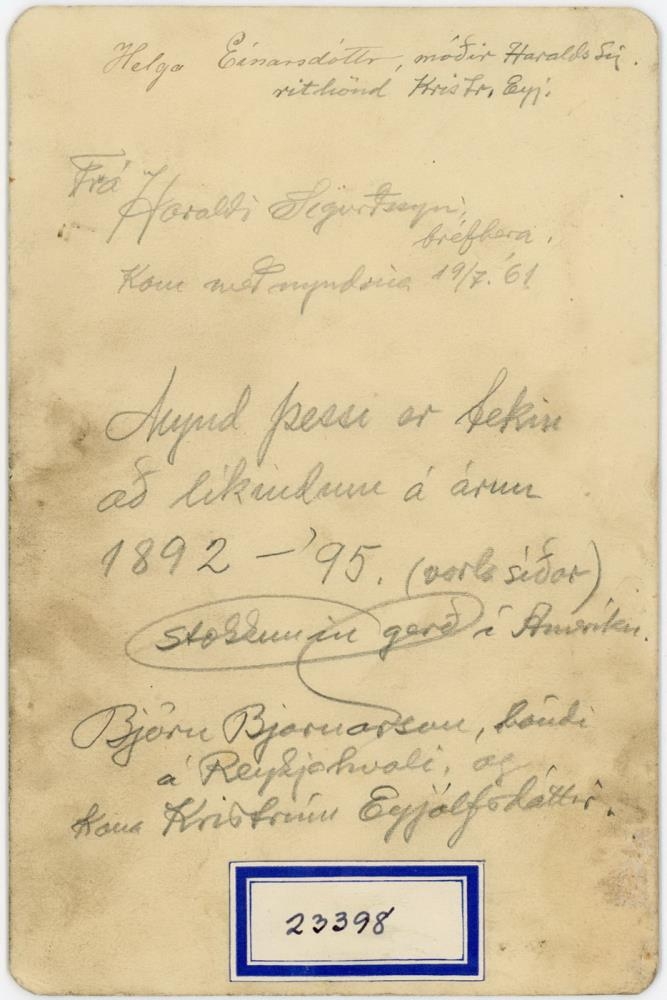 Helga Einarsdóttir, móðir Haralds Sig.
rithönd Kristr. Eyj.
Frá
Haraldi Sigurðssyni,
bréfbera.
Kom með myndina 19/7. '61
Mynd þessi er tekin
að líkindum á árun
1892 – '95. (varla síðar)
stækkunin gerð í Ameríku.
Björn Bjarnarson, bóndi
á Reykjahvoli, og
kona Kristrún Eyjólfsdóttir.
23398